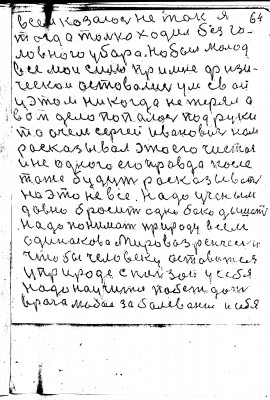 64
всем казалось не так я
тогда только ходил без го-
ловного убора. Но был молод
все мои силы при мне физи-
чески оставались ум свой
и этом никогда не терял а
вот дело попалось под руки
то о чем Сергей Иванович нам
расказывал это его чистая
и не одного его правда после
тоже будут расказывать
на это не все. Надо ученым
давно бросить одно бако дышать
надо понимать природу всем
одинаково Мировоз рение и
чтобы человеку оставатся
и природе с пользой у себя
надо научится побеждать
врага любое заболевание и себя